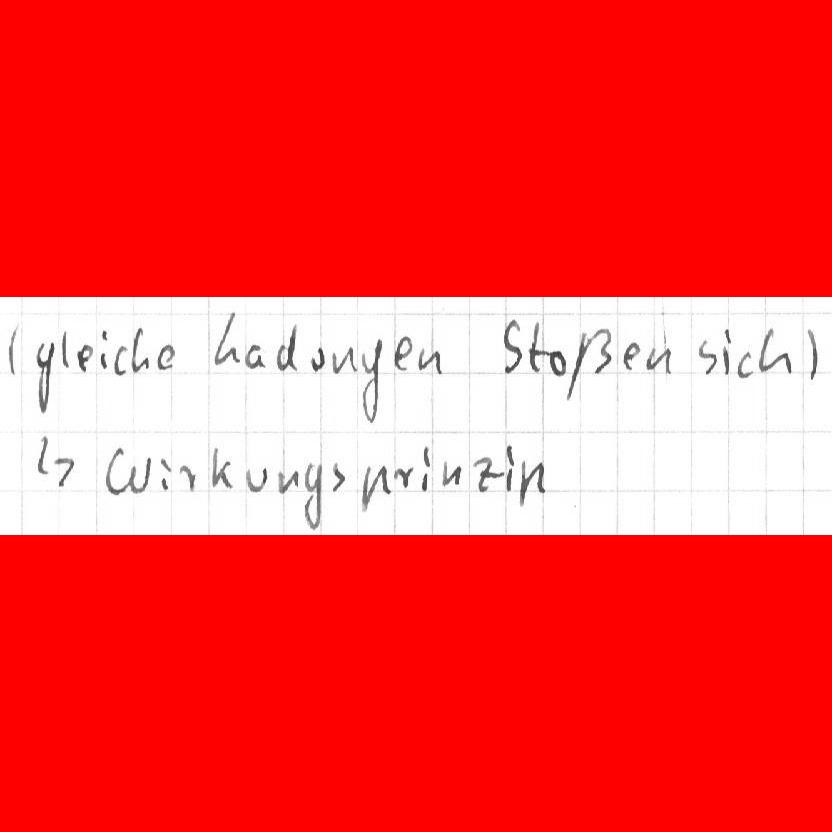 (gleiche Ladungen Stoßen sich)
↳ Wirkungsprinzip